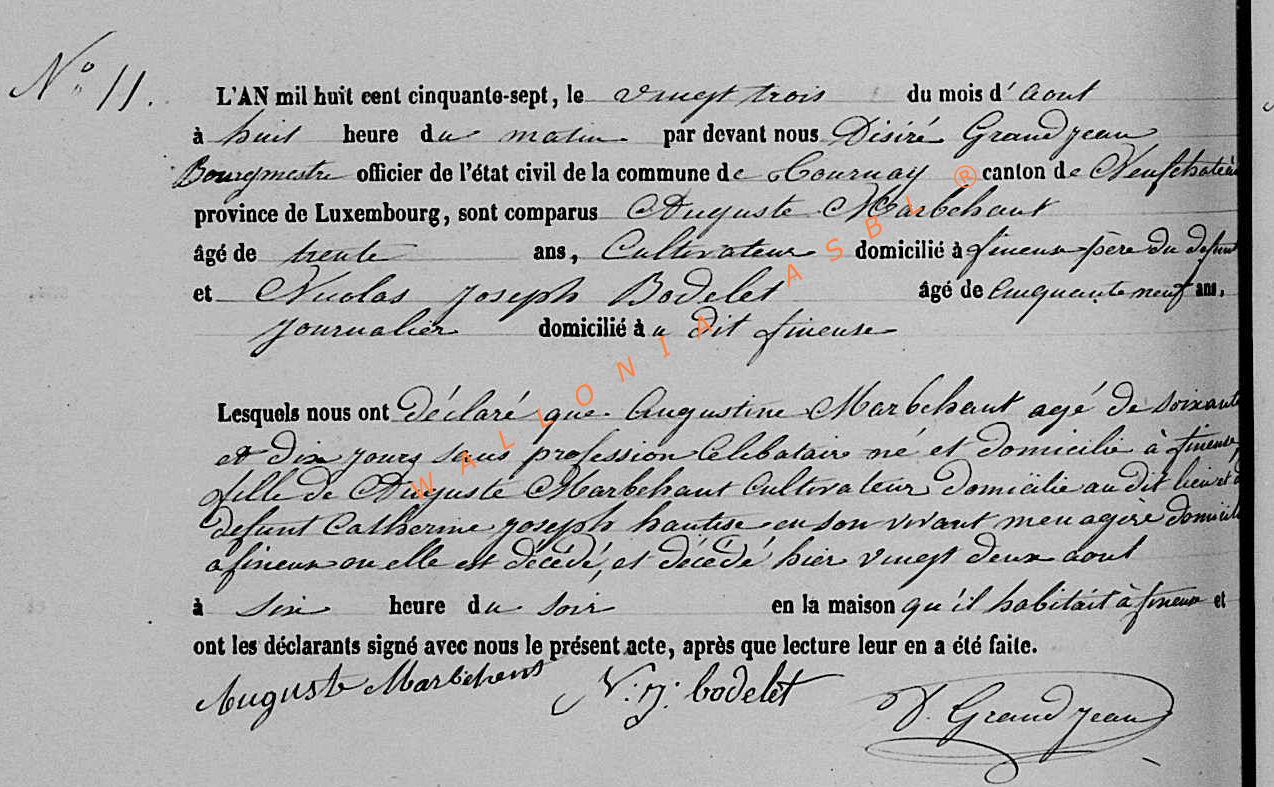 N° 11.
L'AN mil huit cent cinquante-sept, le vingt trois du mois d'Aout
à huit heure du matin par devant nous Désiré Grandjean
Bourgmestre officier de l'état civil de la commune de Tournay ® canton de Neufchateau
province de Luxembourg, sont comparus Auguste Marbehant
âgé de trente ans, Cultivateur domicilié à fineuse père du defunt
et Nicolas Joseph Bodelet âgé de Cinquante neuf ans,
Journalier domicilié à a dit fineuse
Lesquels nous ont déclaré que Augustine Marbehant agé de soixante
et dix jours sans profession Celibataire né et domicilié à fineuse,
fille de Auguste Marbehant Cultivateur domicilie au dit lieu et
defunt Catherine joseph hautise en son vivant menagère domicilié
a fineuse ou elle est décédé, et décédé hier vingt deux aout
à six heure du soir en la maison qu'il habitait à fineuse et
ont les déclarants signé avec nous le présent acte, après que lecture leur en a été faite.
Auguste Marbehant N. J. bodelet D. Grandjean
WALLONIA ASBL